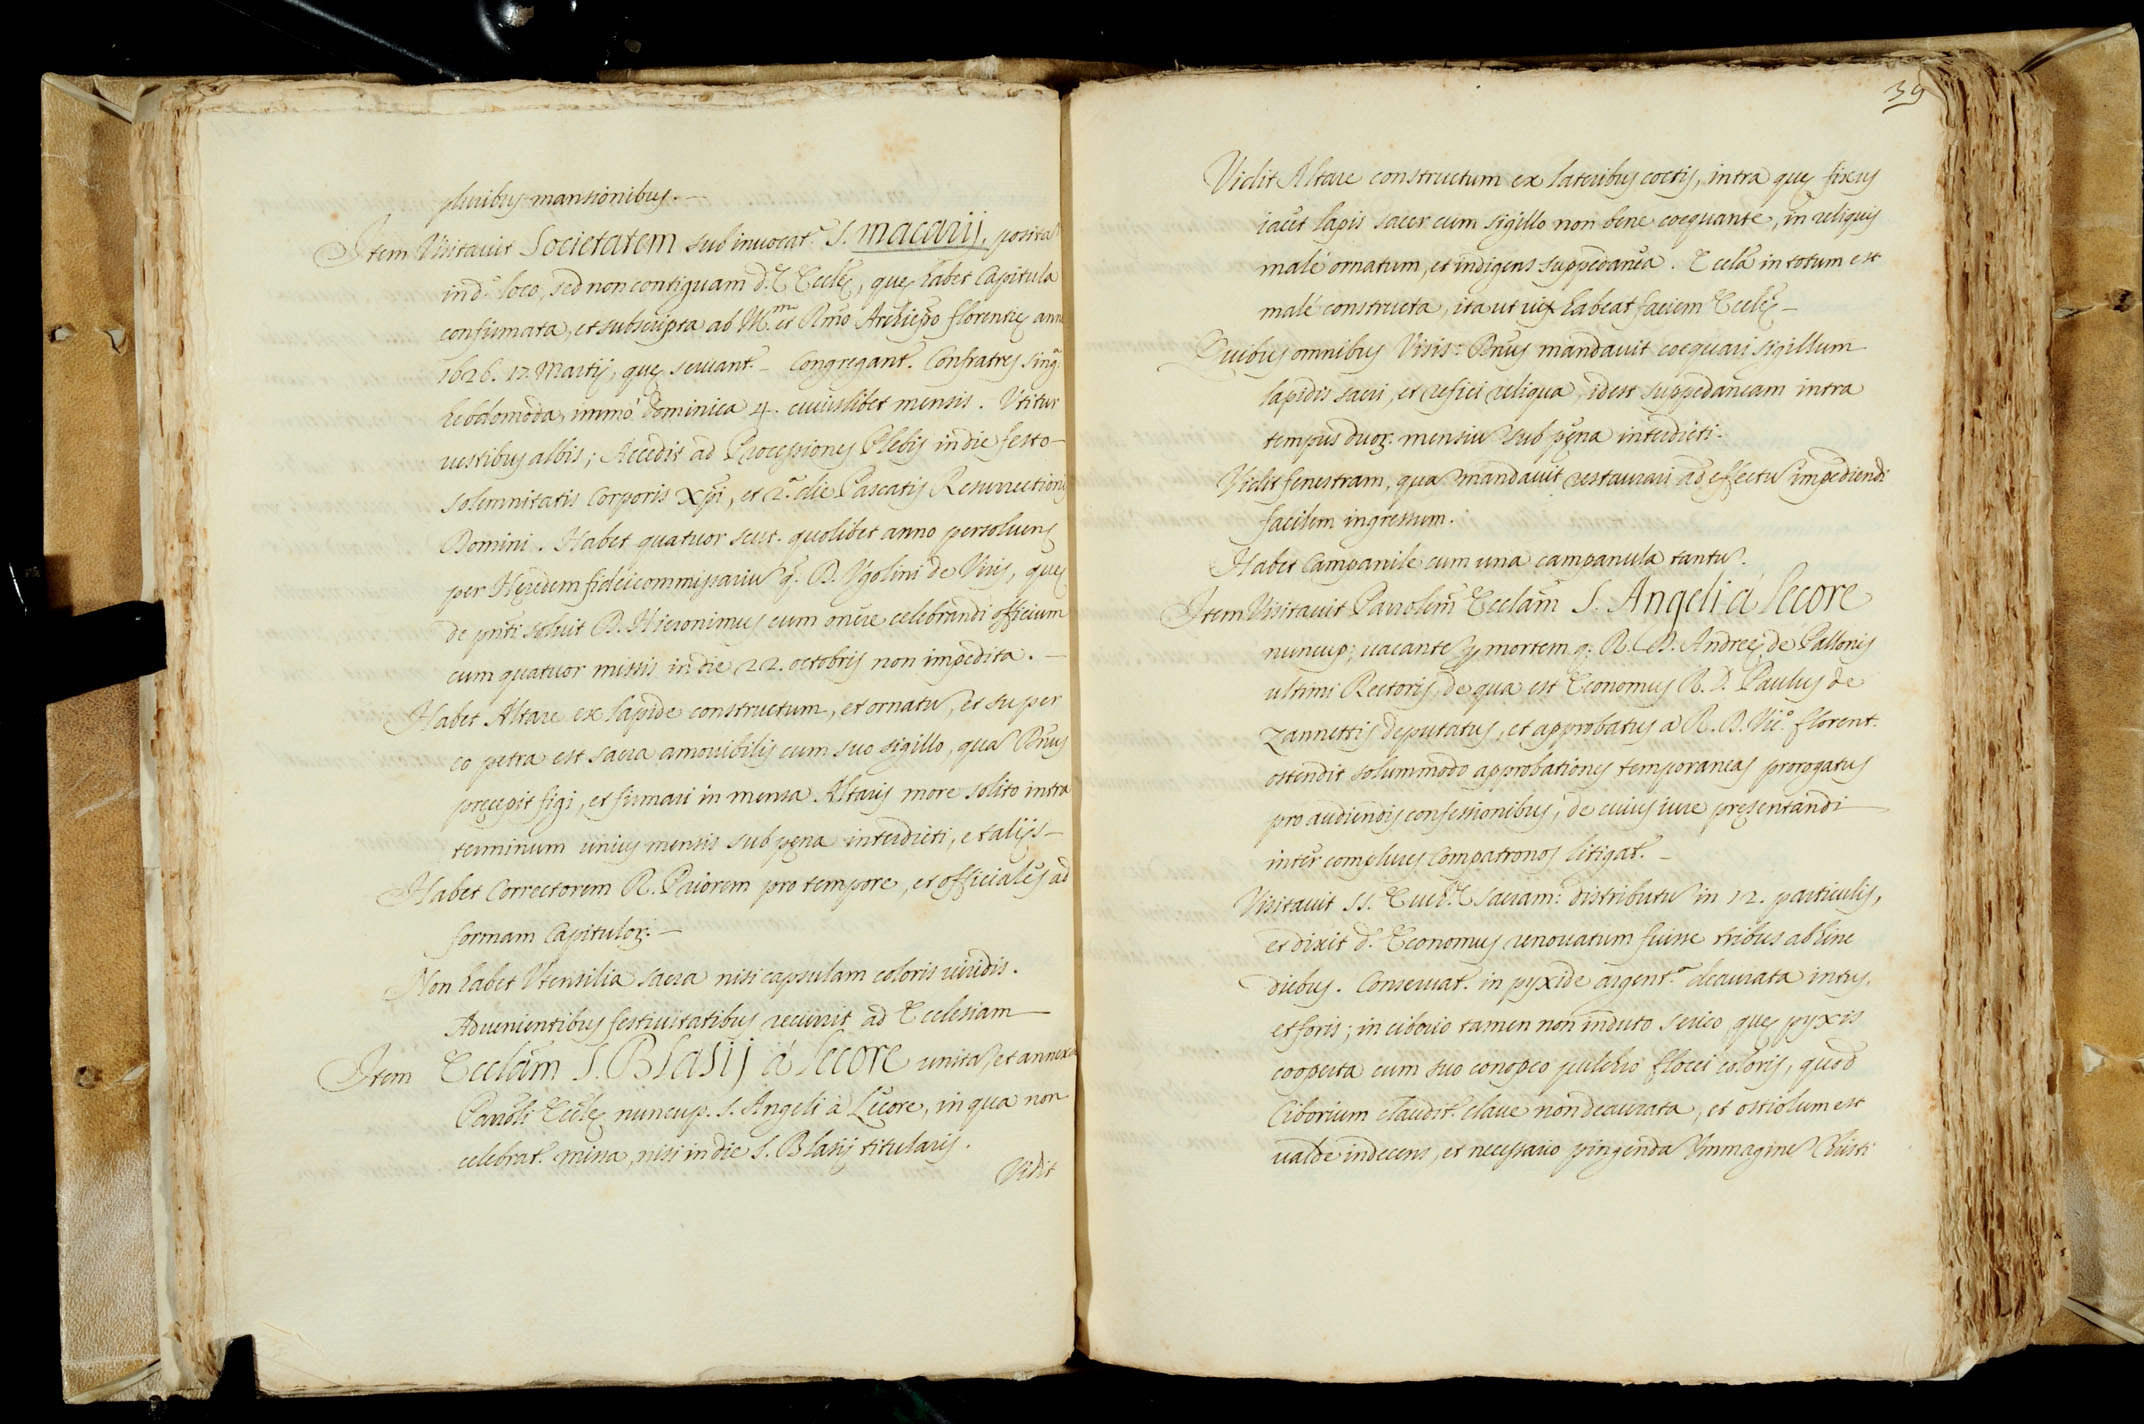 pluribus mansionibus. –
Item Visitavit Societatem sub invocat.e S. Macarij, posita
in d.o loco, sed non contiguam d.e Eccle, que habet Capitula
confirmata, et subscripta ab Ill.mo et Rmo Archiepo florentie anno
1626. 17. Martij, que servant. – Congregant. Confratres sing.a
hebdomoda, immo Dominica 4. cuiuslibet mensis. Utitur
vestibus albis; Accedit ad Processiones Plebis in die festo –
solemnitatis Corporis Xpi, et 2.a die Pascatis Resurrectionis
Domini. Habet quatuor scut. quolibet anno persolvens
per Heredem fideicommissariu q. D. Ugolini de Vivis, ques
de pnti solvit D. Hieronimus cum onere celebrandi officium
cum quatuor missis in die 22. octobris non impedita. –
Habet Altare ex lapide constructum, et ornatu, et super
eo petra est sacra amovibilis cum suo sigillo, qua Dnus
precepit figi, et firmari in mensa Altaris more solito intra
terminum unius mensis sub pena interdicti, et alijs –
Habet Correctorem R. Priorem pro tempore, et officiales ad
formam Capitulor. –
Non habet Utensilia sacra nisi capsulam coloris viridis.
Advenientibus festivitatibus recurrit ad Ecclesiam –
Item Ecclam S. Blasij à lecore unita, et annexa
Parroli Eccle nuncup. S. Angeli à Lecore, in qua non
celebrat. missa, nisi in die S. Blasij titularis.
Vidit
39
Vidit Altare constructum ex lateribus coctis, intra que fixus
iacet lapis sacer cum sigillo non bene coequante, in reliquis
malé ornatum, et indigens suppedanea. Eccla in totum est
malé constructa, ita ut vix habeat faciem Eccle –
Quibus omnibus Visis: Dnus mandavit coequari sigillum
lapidis sacri, et refici reliqua, idest suppedaneam intra
tempus duor. mensiu sub pena interdicti.
Vidit fenestram, qua mandavit restaurari ad effectu impediendi
facilem ingressum.
Habet Campanile cum una campanula tantu.
Item Visitavit Parrolem Ecclam S. Angeli à lecore
nuncup; vacante p mortem q. R. D. Andree de Pallonis
ultimi Rectoris, de qua est Economus R. D. Paulus de
Zannettis deputatus, et approbatus a R. D. Vic.o florent.
ostendit solummodo approbationes temporaneas prorogatus
pro audiendis confessionibus; de cuius iure presentandi –
inter complures Compatronos litigat. –
Visitavit SS. Euc.e Sacram: distributu in 12. particulis,
et dixit d. Economus renovatum fuisse tribus abhinc
diebus. Conservat. in pyxide argent.a deaurata intus,
et foris; in ciborio tamen non induto serico, que pyxis
cooperta cum suo conopeo pulchro flocci coloris, quod
Ciborium claudit. clave non deaurata, et ostiolum est
valde indecens, et necessario pingenda Immagine Christi